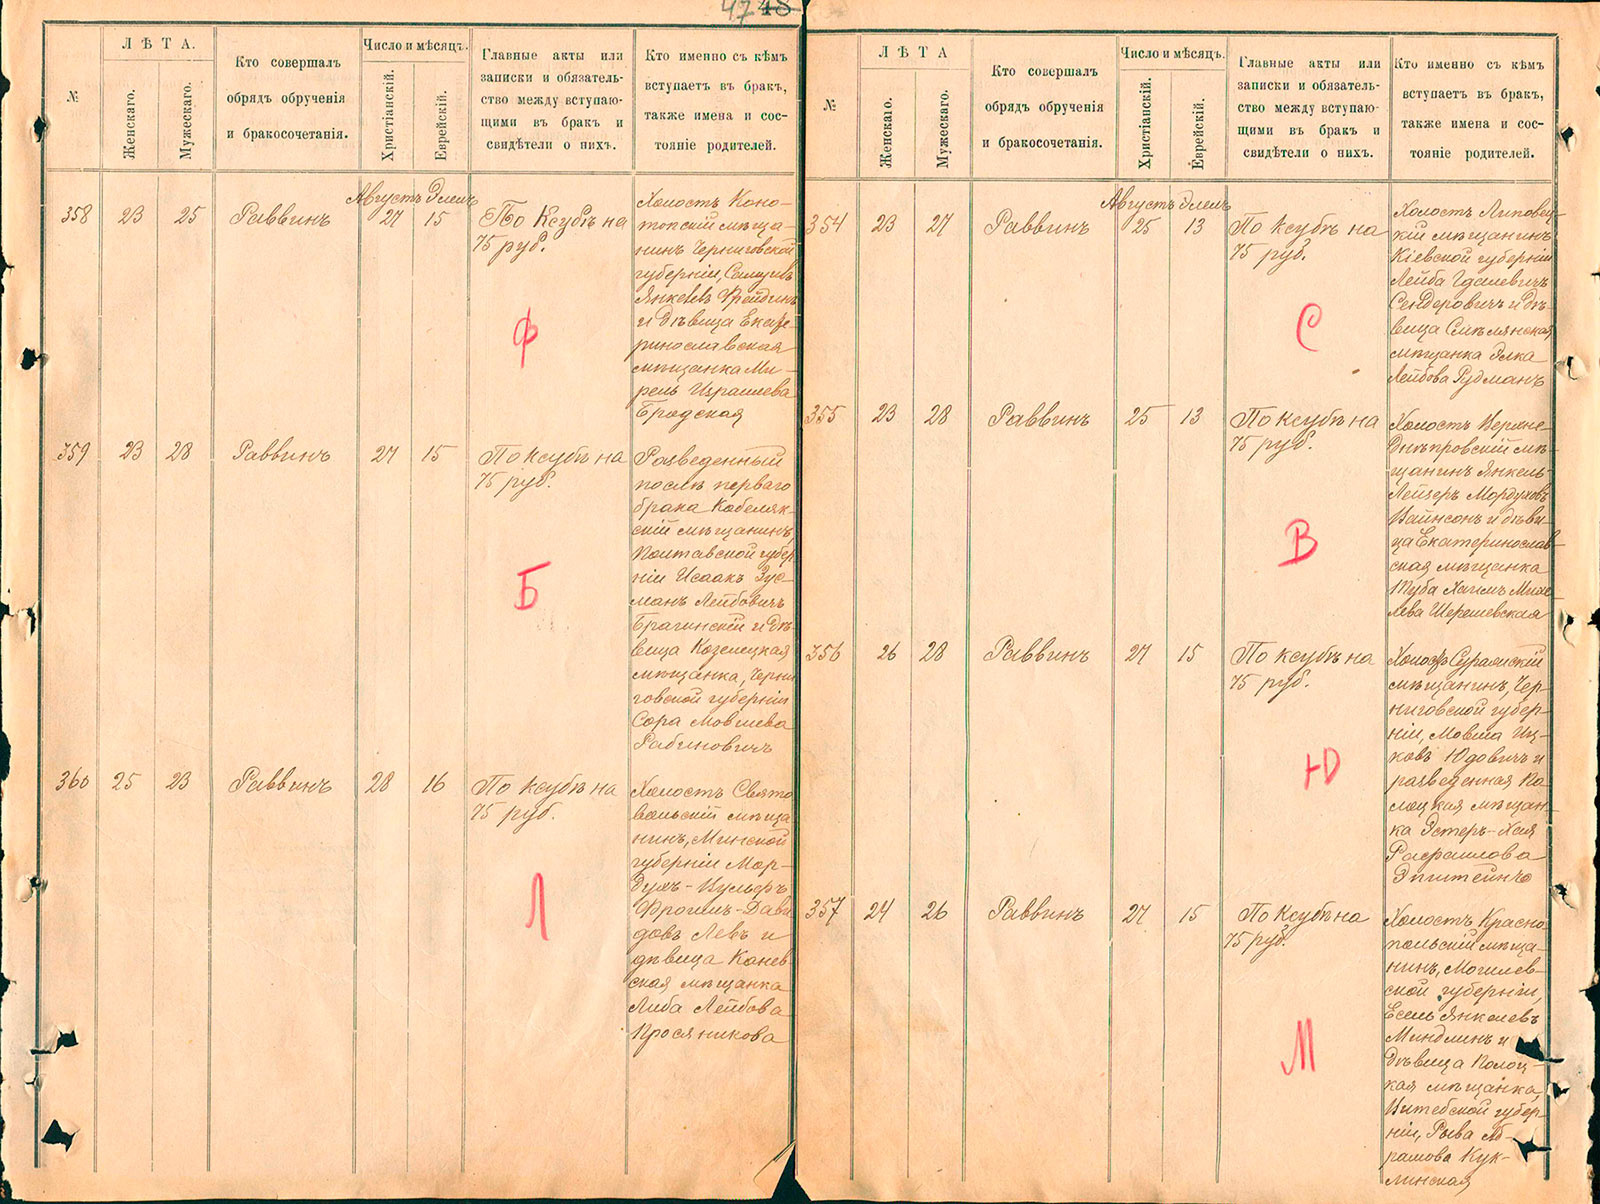 47 48
№
ЛѢТА.
Женскаго.
Мужескаго.
Кто совершалъ
обрядъ обрученія
и бракосочетанія.
Число и мѣсяцъ.
Христіанскій.
Еврейскій.
Главные акты или
записки и обязатель-
ство между вступаю-
щими въ бракъ и
свидѣтели о нихъ.
Кто именно съ кѣмъ
вступаетъ въ бракъ,
также имена и сос-
тояніе родителей.
358
23
25
Раввинъ
Августъ Элелъ
27 15
По Ксубѣ на
75 руб.
Ф
Холостъ Коно-
топскій мѣща-
нинъ Черниговской
губерніи, Самуилъ
Янкелевъ Фрейдинъ
и дѣвица Екате-
ринославская
мѣщанка Ми-
рель Израилева
Бродская
359
23
28
Раввинъ
27 15
По ксубѣ на
75 руб.
Б
Разведенный
послѣ перваго
брака Кобеляк-
скій мѣщанинъ,
Полтавской губер-
ніи Исаакъ Зус-
манъ Лейбовичъ
Брагинскій и дѣ-
вица Козелецкая
мѣщанка, Черни-
говской губерніи
Сора Мовшева
Рабиновичъ
360
25
23
Раввинъ
28 16
По ксубѣ на
75 руб.
Л
Холостъ Свято
вольскій мѣща
нинъ, Минской
губерніи Мор-
духъ-Вульфъ
Фроимъ-Дави
довъ Левъ и
дѣвица Канев-
ская мѣщанка
Либа Лейбова
Просяникова
№
ЛѢТА
Женскаго.
Мужескаго.
Кто совершалъ
обрядъ обрученія
и бракосочетанія.
Число и мѣсяцъ.
Христіанскій.
Еврейскій.
Главные акты или
записки и обязатель-
ство между вступаю-
щими въ бракъ и
свидѣтели о нихъ.
Кто именно съ кѣмъ
вступаетъ въ бракъ,
также имена и сос-
тояніе родителей.
354
23
27
Раввинъ
Августъ Элелъ
25 13
По ксубѣ на
75 руб.
С
Холостъ Липовец-
кій мѣщанинъ
Кіевской губерніи
Лейба Гдалевичъ
Сендеровичъ и дѣ-
вица Смѣлянская
мѣщанка Элка
Лейбова Рудманъ
355
23
28
Раввинъ
25 13
По ксубѣ на
75 руб.
В
Холостъ Верхне-
Днѣпровскій мѣ-
щанинъ Янкель-
Лейзеръ Мордуховъ
Вайнсонъ и дѣви-
ца Екатеринослав-
ская мѣщанка
Туба Хаимъ Миха
лева Шерешевская
356
26
28
Раввинъ
27 15
По ксубѣ на
75 руб.
Ю
Холостъ Суражскій
мѣщанинъ, Чер-
ниговской губер-
ніи, Мовша Иц-
ковъ Юдовичъ и
разведенная По-
лоцкая мѣщан-
ка Эстеръ-Хая
Рафаилова
Эпштейнъ
357
24
26
Раввинъ
27 15
По Ксубѣ на
75 руб.
М
Холостъ Красно
польскій мѣща-
нинъ, Могилев-
ской губерніи,
Есель Янкелевъ
Миндлинъ и
дѣвица Полоц-
кая мѣщанка,
Витебской губер-
ніи, Рыва Аб-
рамова Кук-
линская